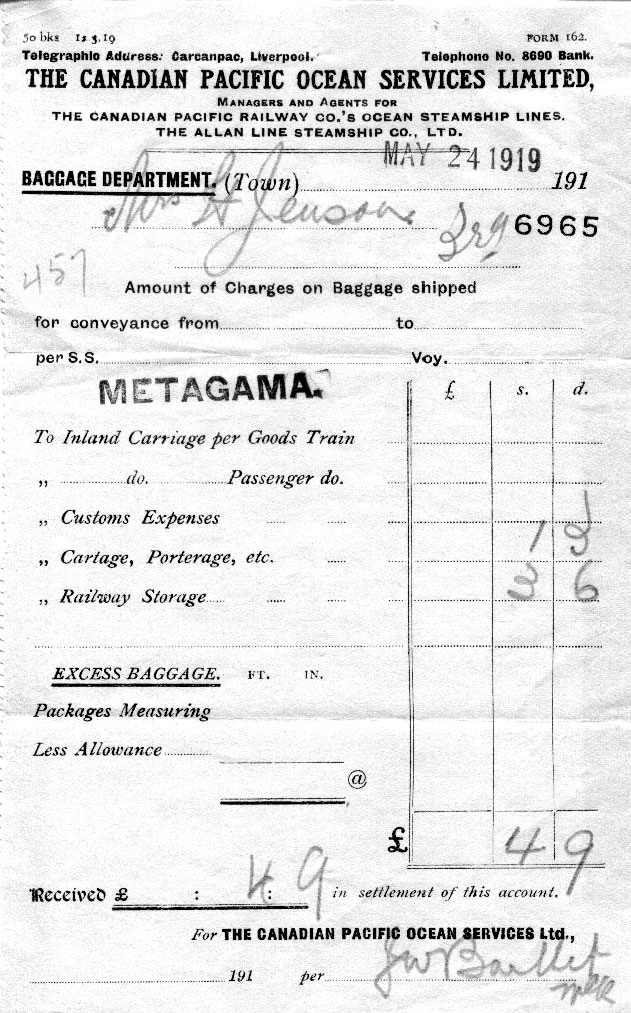 50 bks 12 3.19 FORM 162.
Telegraphic Address: Carcanpac, Liverpool. Telephone No. 8690 Bank.
THE CANADIAN PACIFIC OCEAN SERVICES LIMITED,
MANAGERS AND AGENTS FOR
THE CANADIAN PACIFIC RAILWAY CO.'S OCEAN STEAMSHIP LINES.
THE ALLAN LINE STEAMSHIP CO., LTD.
MAY 24 1919
BAGGAGE DEPARTMENT. (Town) 191
Mrs H Jenson 3rd 6965
457
Amount of Charges on Baggage shipped
for conveyance from to
per S.S. Voy.
METAGAMA. £ s. d.
To Inland Carriage per Goods Train
„ do. Passenger do.
„ Customs Expenses
„ Cartage, Porterage, etc. 1 3
„ Railway Storage 3 6
EXCESS BAGGAGE. FT. IN.
Packages Measuring
Less Allowance
@
£ 4 9
Received £ : 4 : 9 in settlement of this account.
For THE CANADIAN PACIFIC OCEAN SERVICES Ltd.,
191 per JW Bartlet